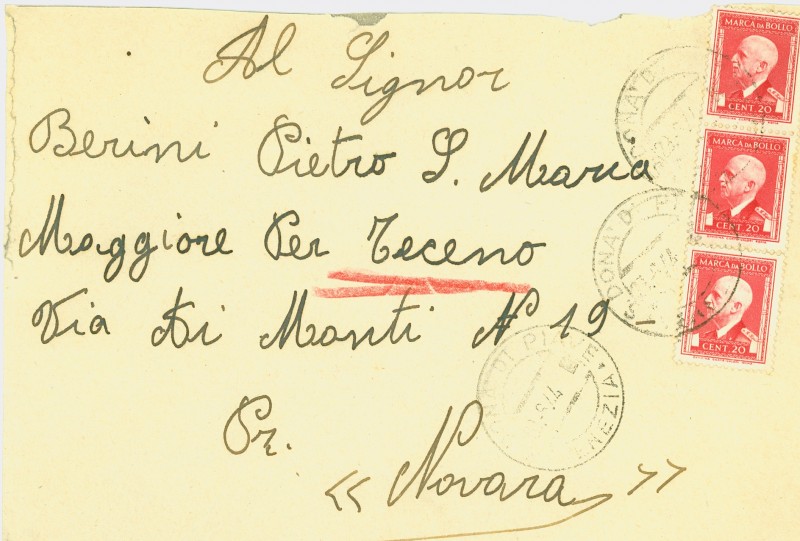 Al Signor
Berini Pietro S. Maria
Maggiore Per Teceno
Via Ai Monti N 19
Pr.
« Novara »
MARCA DA BOLLO
CENT. 20
MARCA DA BOLLO
CENT. 20
MARCA DA BOLLO
CENT. 20
S. DONA' D PI
DONA' DI PIAVE VENEZIA